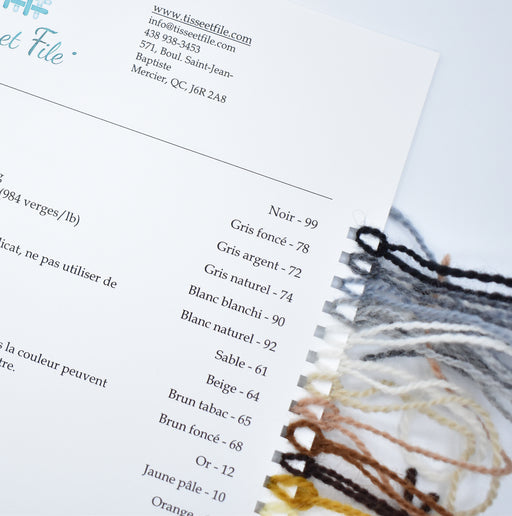 et File
www.tisseetfile.com
info@tisseetfile.com
438 938-3453
571, Boul. Saint-Jean-
Baptiste
Mercier, QC, J6R 2A8
(984 verges/lb)
icat, ne pas utiliser de
s la couleur peuvent
tre.
Noir - 99
Gris foncé - 78
Gris argent - 72
Gris naturel - 74
Blanc blanchi - 90
Blanc naturel - 92
Sable - 61
Beige - 64
Brun tabac - 65
Brun foncé - 68
Or - 12
Jaune pâle - 10
Orange